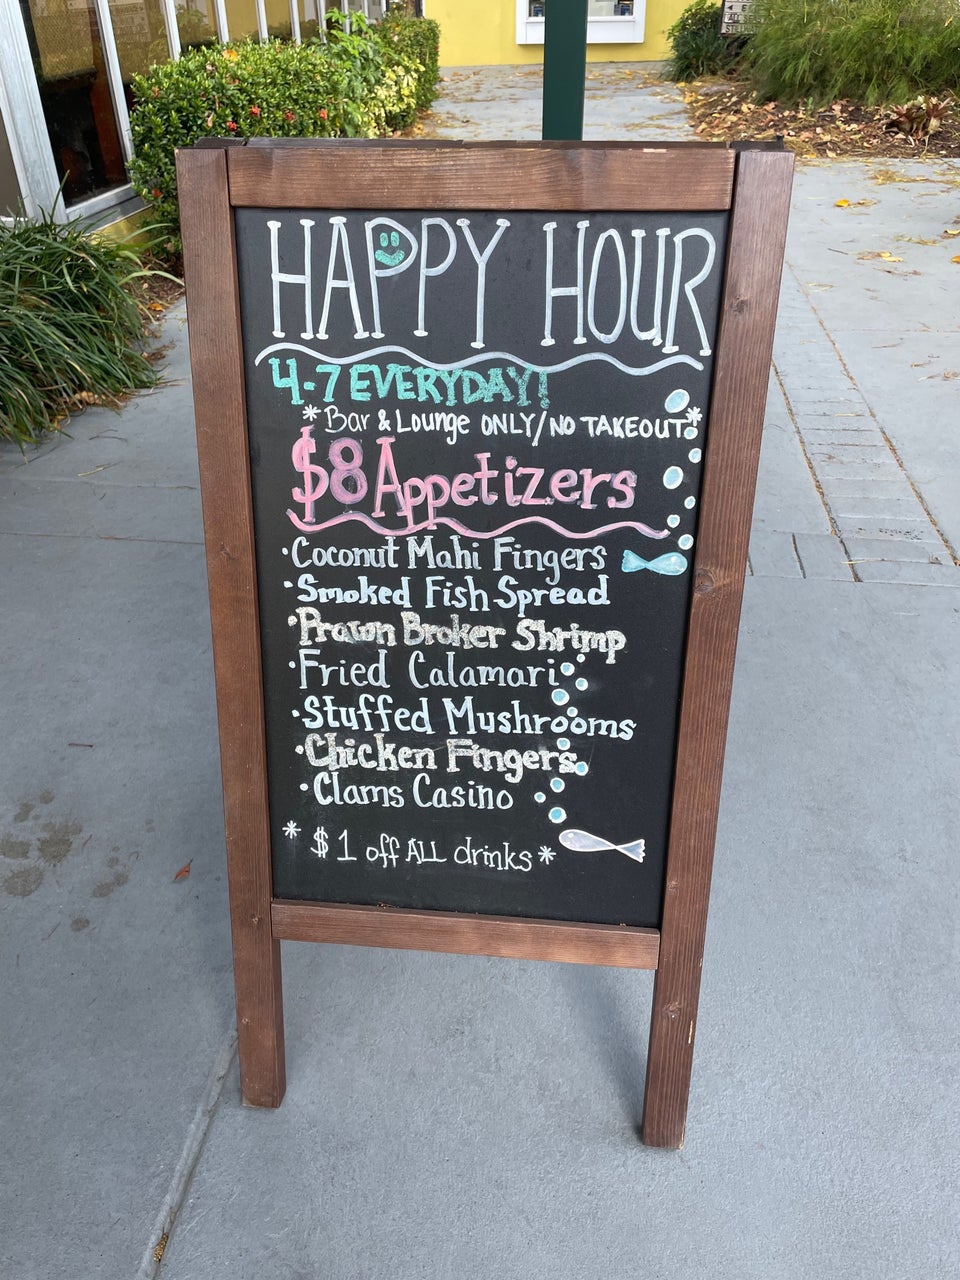 HAPPY HOUR
4-7 EVERYDAY!
*Bar & Lounge ONLY/NO TAKEOUT*
$8 Appetizers
·Coconut Mahi Fingers
·Smoked Fish Spread
·Prawn Broker Shrimp
·Fried Calamari
·Stuffed Mushrooms
·Chicken Fingers
·Clams Casino
* $1 off ALL drinks*